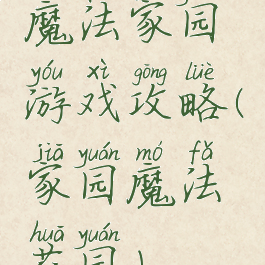 魔法家园
yóu xì gōng lüè
游戏攻略(
jiā yuán mó fǎ
家园魔法
huā yuán
花园)